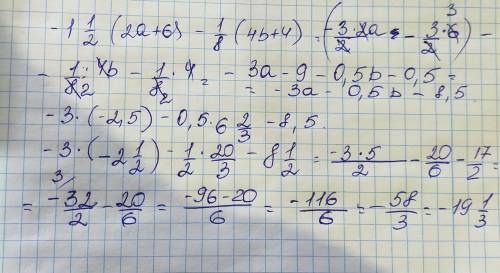 -1 1/2 (2a+6) - 1/8 (4b+4) = (-3/2·2a - 3/2·6) -
- 1/8·4b - 1/8·4 = -3a-9-0,5b-0,5=
= -3a-0,5b-8,5.
-3·(-2,5)-0,5·6 2/3-8,5.
-3·(-2 1/2)-1/2·20/3-8 1/2=-3·5/2-20/6-17/2=
= -32/2-20/6=-96-20/6=-116/6=-58/3=-19 1/3